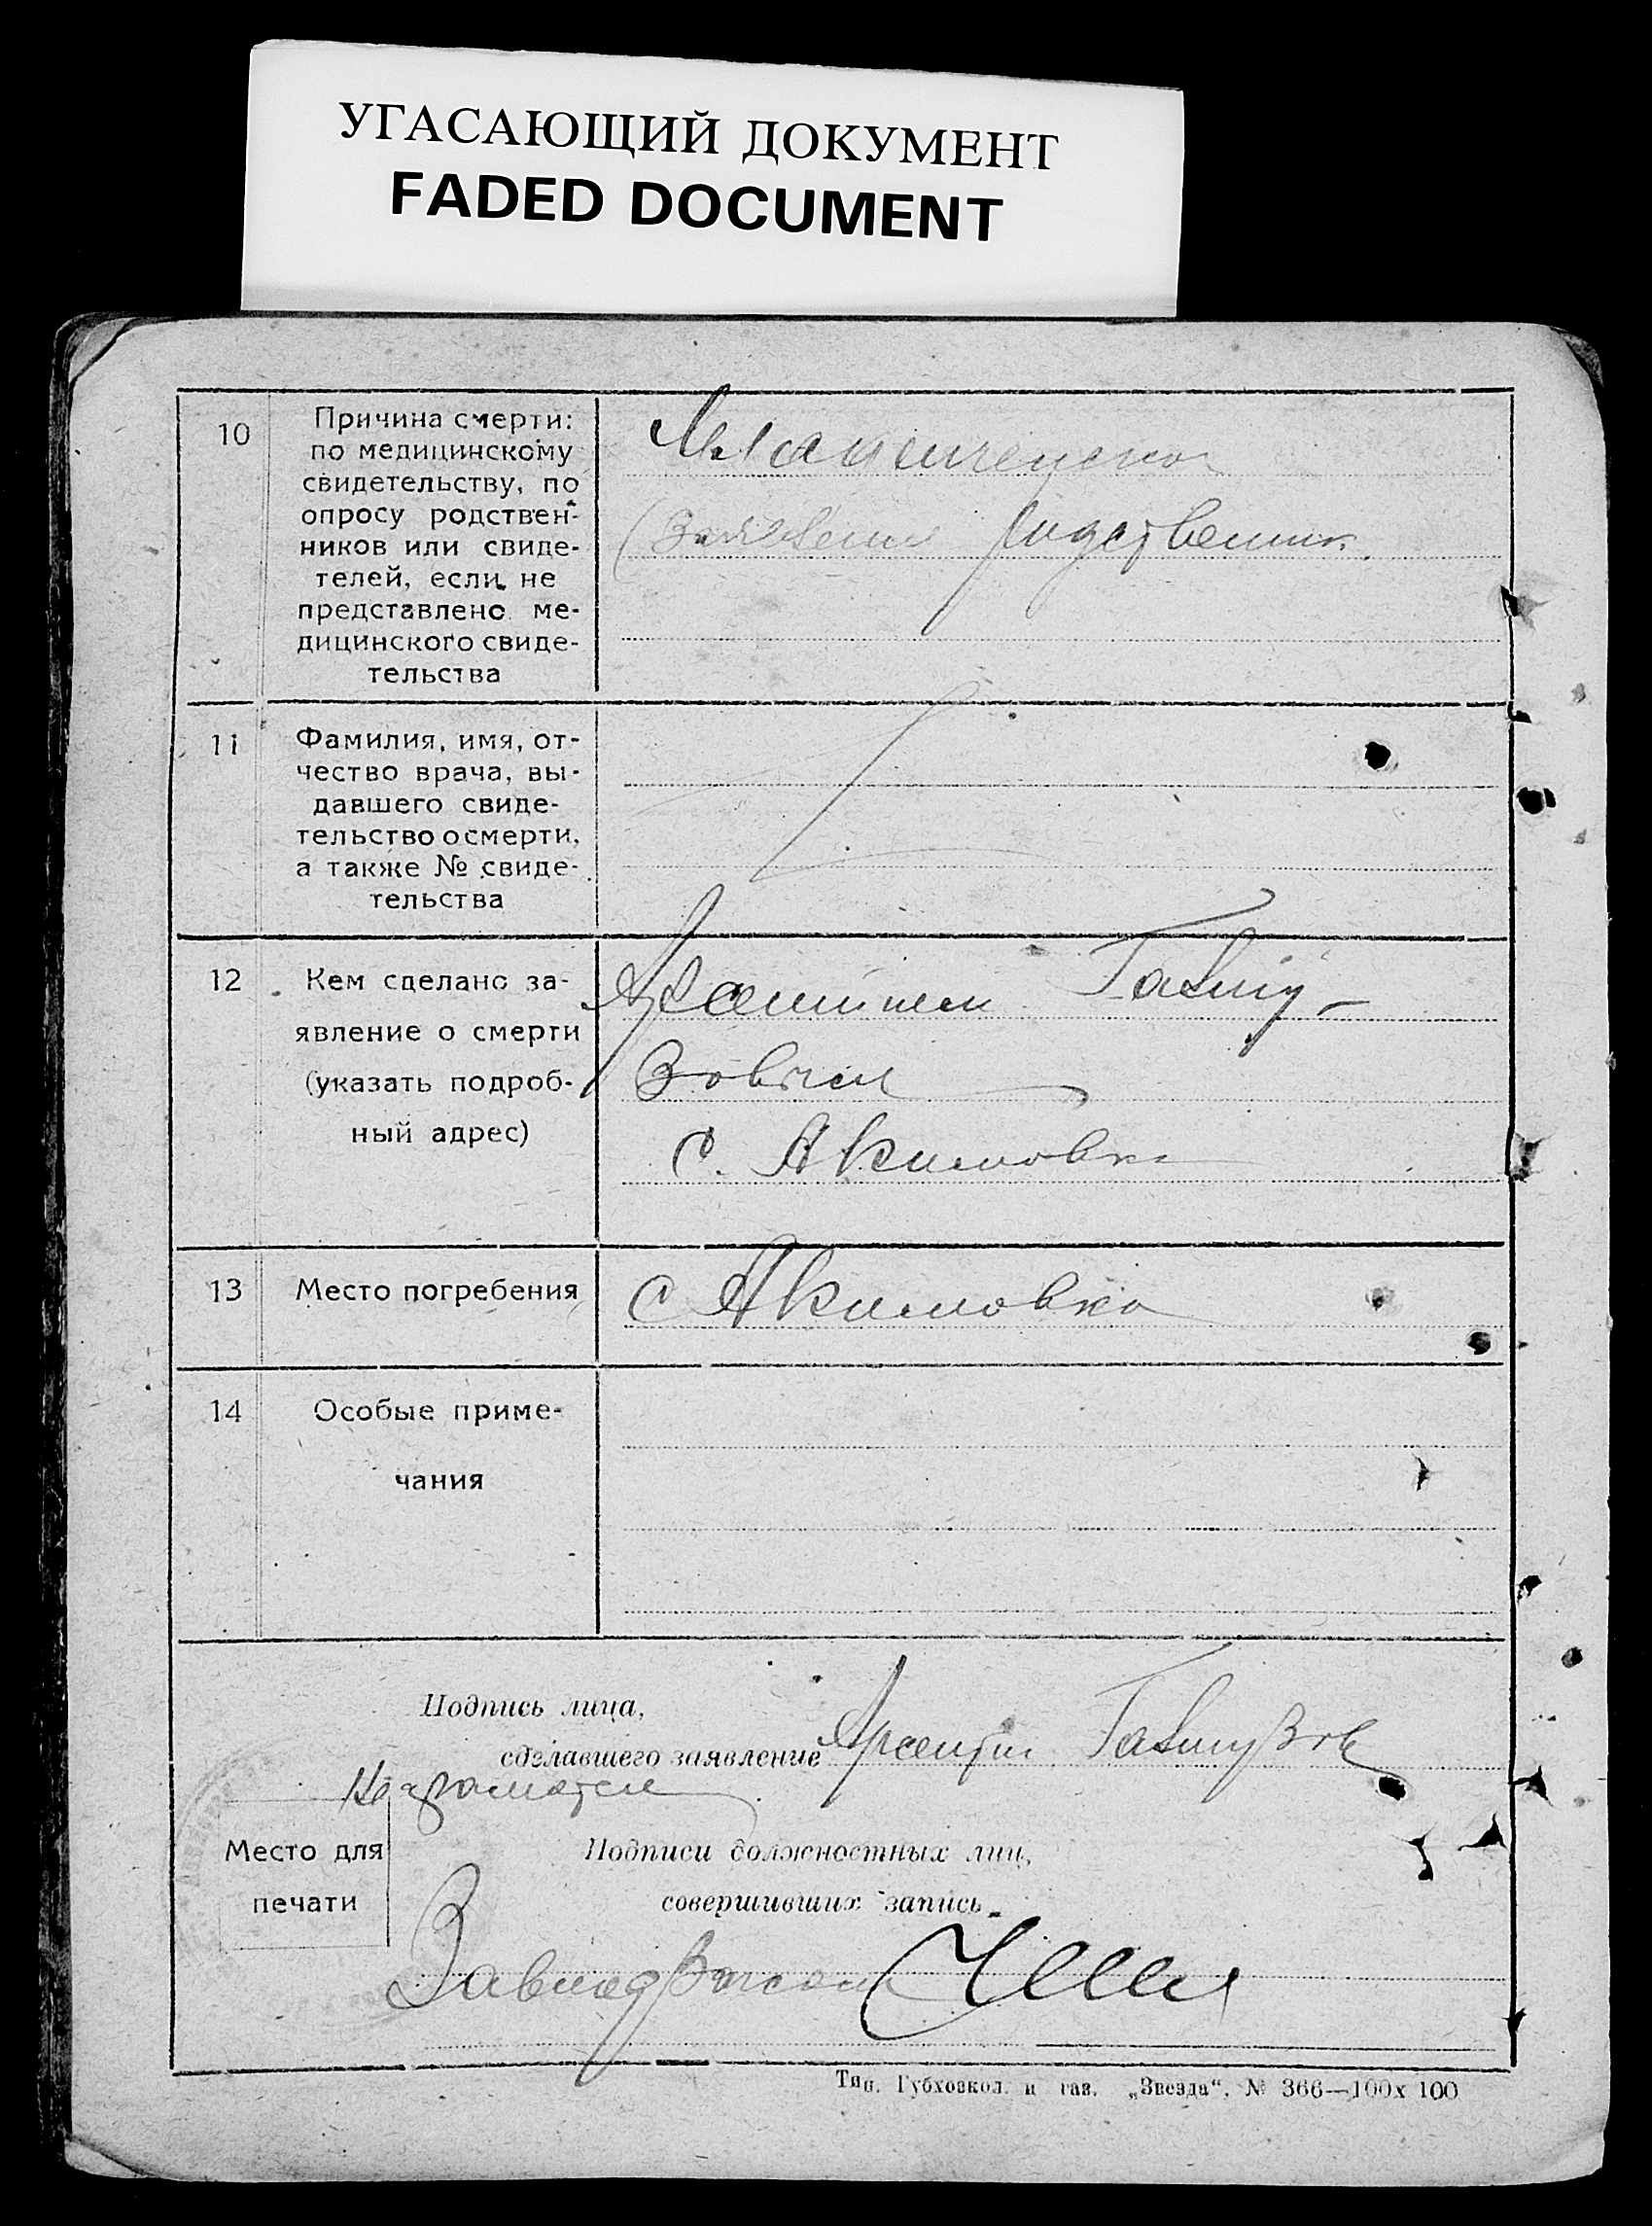 УГАСАЮЩИЙ ДОКУМЕНТ
FADED DOCUMENT
10
Причина смерти:
по медицинскому
свидетельству, по
опросу родствен-
ников или свиде-
телей, если не
представлено ме-
дицинского свиде-
тельства
Младенческая
родственник.
11
Фамилия, имя, от-
чество врача, вы-
давшего свиде-
тельство о смерти,
а также № свиде-
тельства
12
Кем сделано за-
явление о смерти
(указать подроб-
ный адрес)
зовым
с. Акимовка
13
Место погребения
с Акимовка
14
Особые приме-
чания
Подпись лица,
сделавшего заявление
Неграмотен
Место для
печати
Подписи должностных лиц,
совершивших запись
Тип. Губховкол. и газ. „Звезда“. № 366—100x100